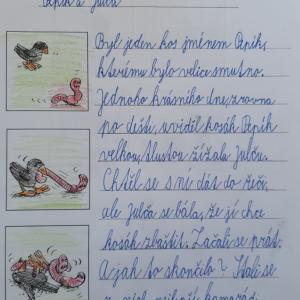 Pepík a Julča
Byl jeden kos jménem Pepík,
kterému bylo velice smutno.
Jednoho krásného dne, zrovna
po dešti, uviděl kosák Pepík
velkou, tlustou žížalu Julču.
Chtěl se s ní dát do řeči,
ale Julča se bála, že jí chce
kosák zbaštit. Začali se prát.
A jak to skončilo? Stali se
z nich nejlepší kamarádi.